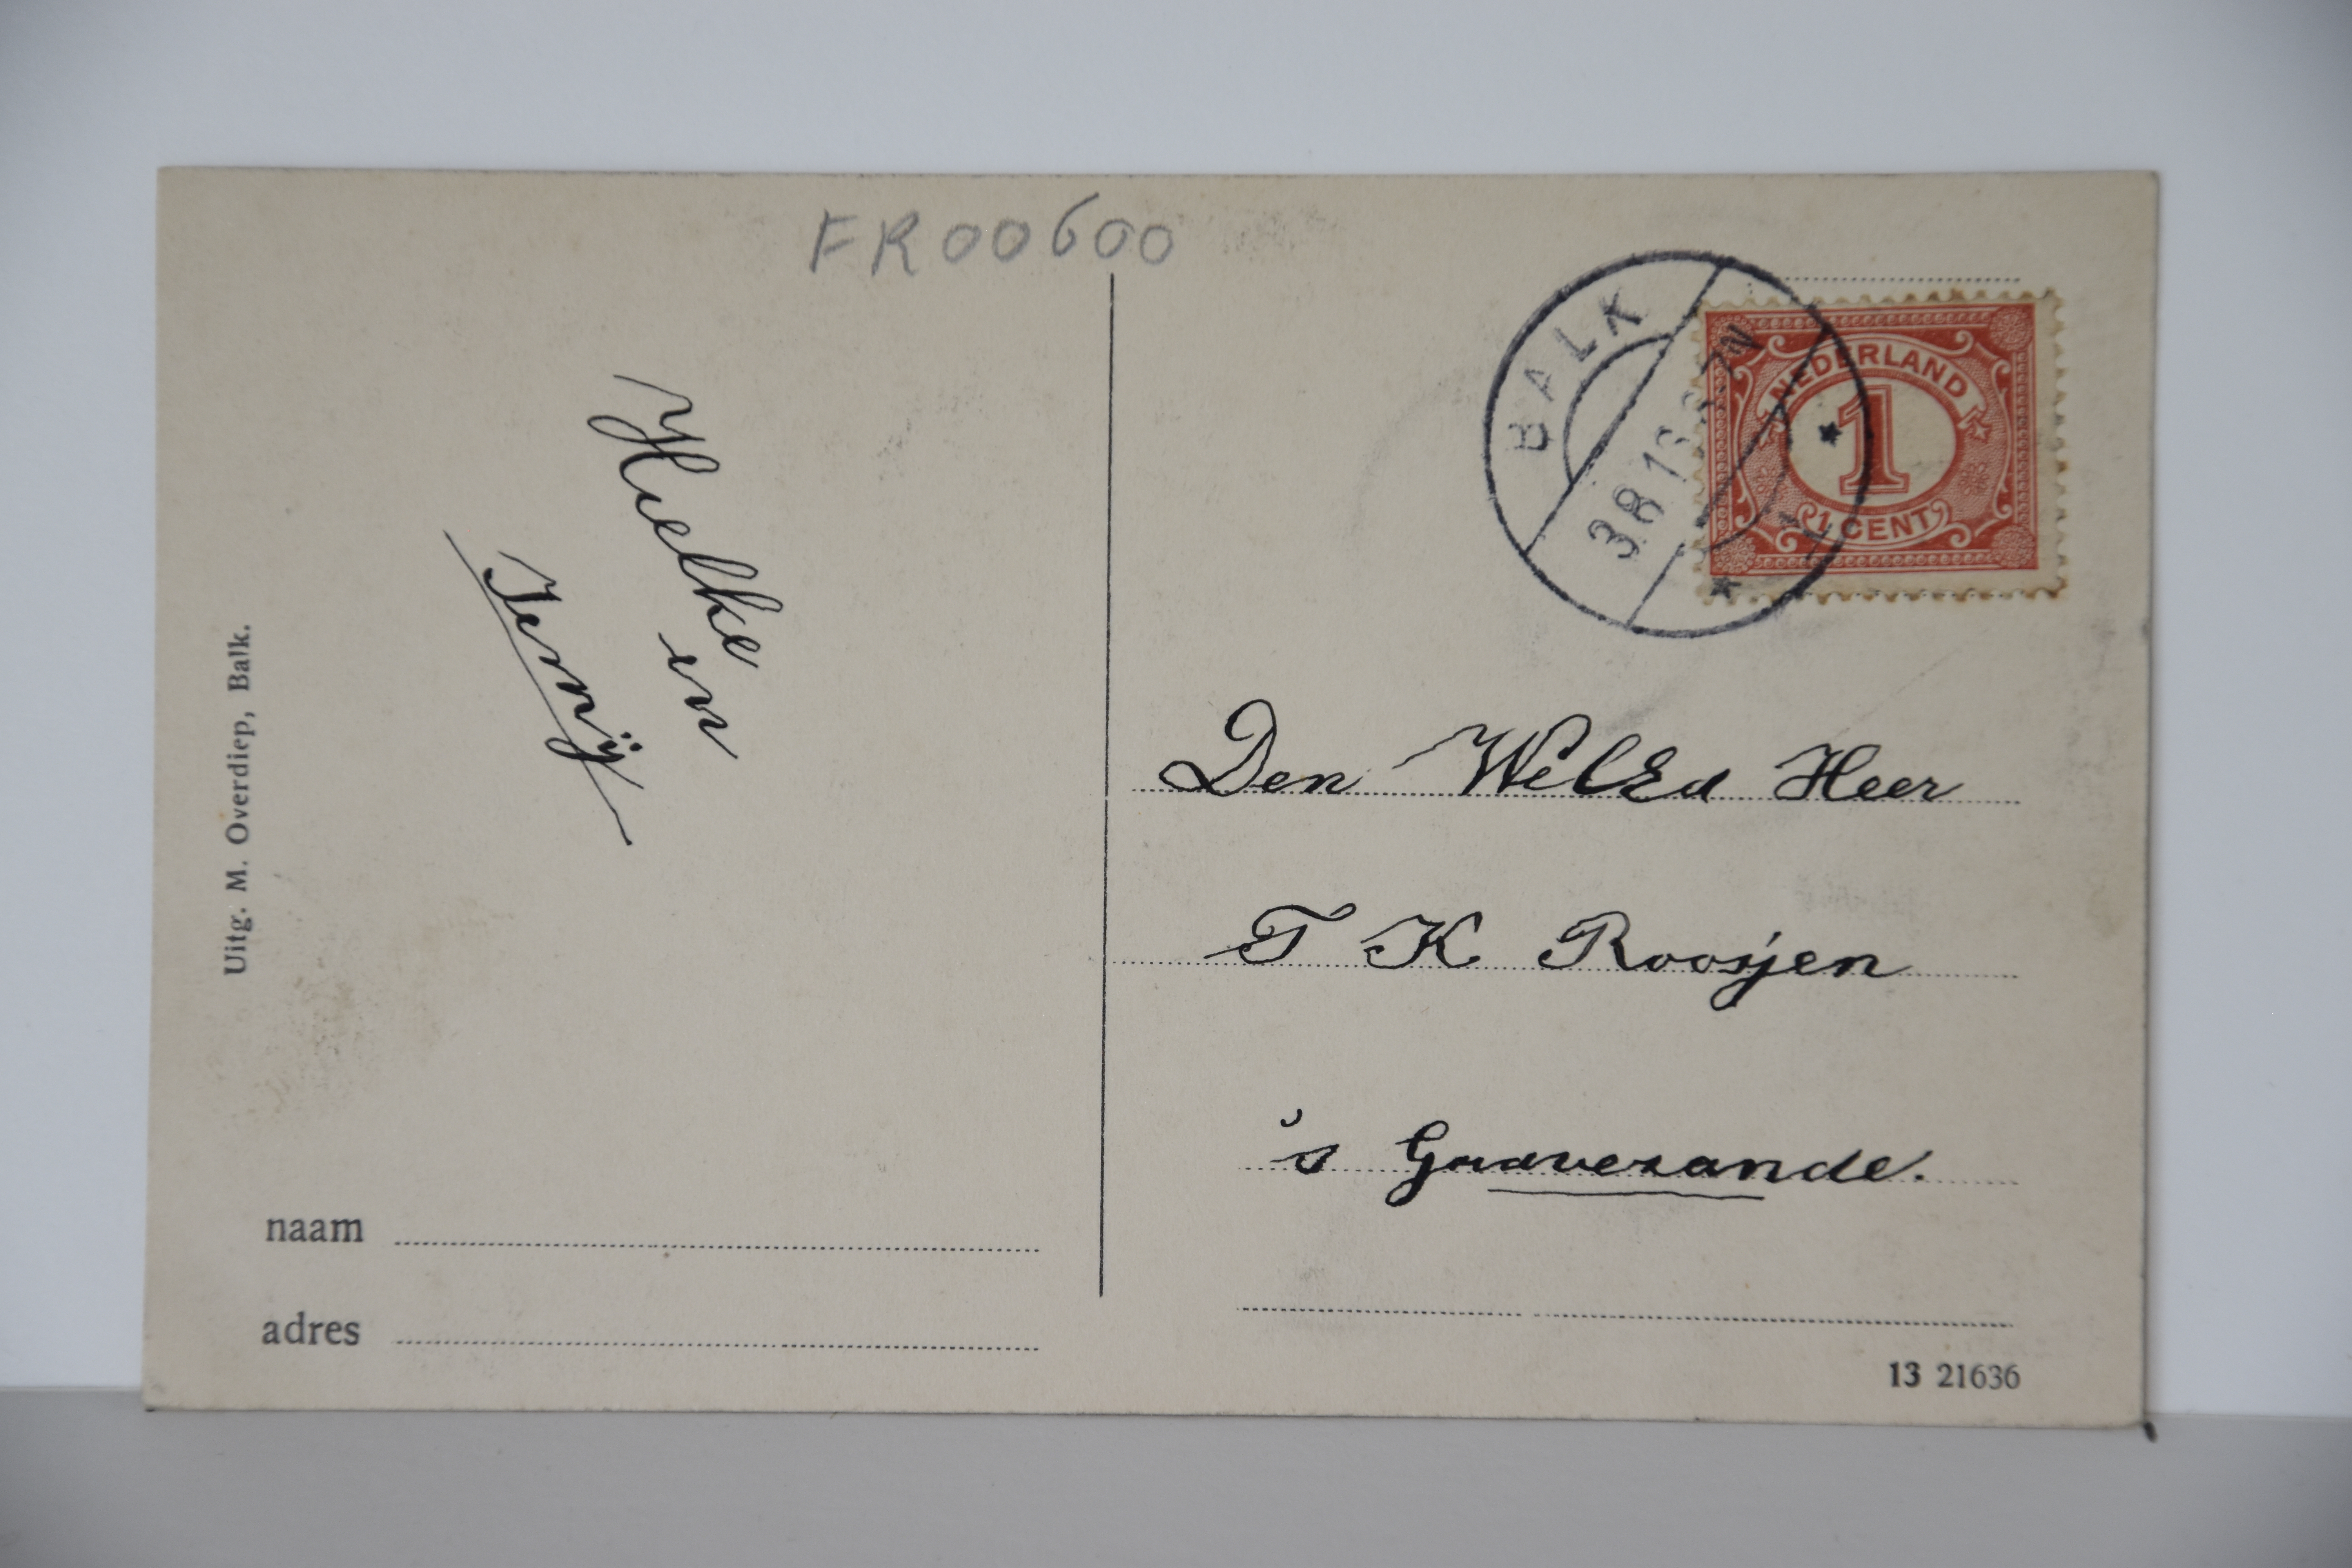 FR00600
BALK
3.8.1
7N
NEDERLAND
1
1 CENT
Hielke
en
Jenny
Uitg. M. Overdiep, Balk.
Den WelEd Heer
T K Roosjen
's Gravezande.
naam
adres
13 21636